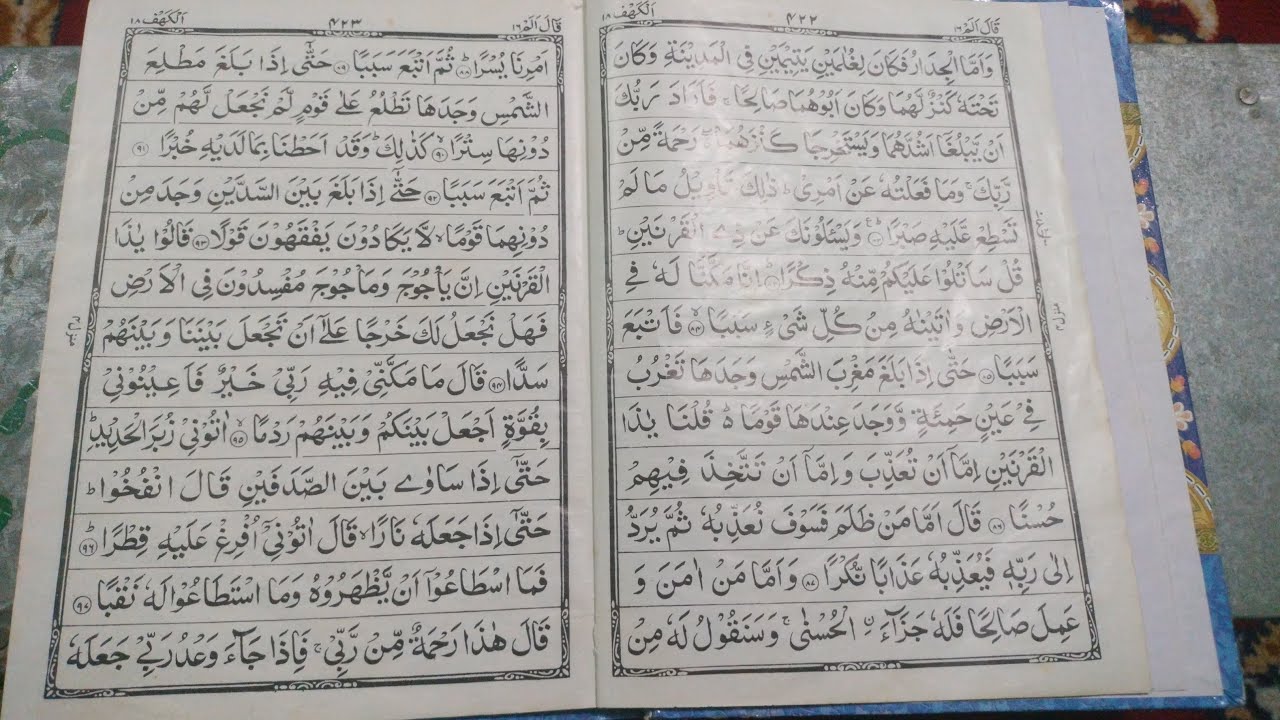 قَالَ اَلَمْ ١٦
٤٢٢
اَلْكَهْف ١٨
وَاَمَّا الْجِدَارُ فَكَانَ لِغُلٰمَيْنِ يَتِيْمَيْنِ فِى الْمَدِيْنَةِ وَكَانَ
تَحْتَهٗ كَنْزٌ لَّهُمَا وَكَانَ اَبُوْهُمَا صَالِحًا ۚ فَاَرَادَ رَبُّكَ
اَنْ يَّبْلُغَاۤ اَشُدَّهُمَا وَيَسْتَخْرِجَا كَنْزَهُمَا ۖ رَحْمَةً مِّنْ
رَّبِّكَ ۚ وَمَا فَعَلْتُهٗ عَنْ اَمْرِىْ ؕ ذٰلِكَ تَاْوِيْلُ مَا لَمْ
تَسْطِعْ عَّلَيْهِ صَبْرًا ؕ۸۲ وَيَسْـَٔلُوْنَكَ عَنْ ذِى الْقَرْنَيْنِ ؕ
قُلْ سَاَتْلُوْا عَلَيْكُمْ مِّنْهُ ذِكْرًا ؕ۸۳ اِنَّا مَكَّنَّا لَهٗ فِى
الْاَرْضِ وَاٰتَيْنٰهُ مِنْ كُلِّ شَىْءٍ سَبَبًا ۙ۸۴ فَاَتْبَعَ
سَبَبًا ۸۵ حَتّٰۤى اِذَا بَلَغَ مَغْرِبَ الشَّمْسِ وَجَدَهَا تَغْرُبُ
فِىْ عَيْنٍ حَمِئَةٍ وَّوَجَدَ عِنْدَهَا قَوْمًا ؕ۬ قُلْنَا يٰذَا
الْقَرْنَيْنِ اِمَّاۤ اَنْ تُعَذِّبَ وَاِمَّاۤ اَنْ تَتَّخِذَ فِيْهِمْ
حُسْنًا ۸۶ قَالَ اَمَّا مَنْ ظَلَمَ فَسَوْفَ نُعَذِّبُهٗ ثُمَّ يُرَدُّ
اِلٰى رَبِّهٖ فَيُعَذِّبُهٗ عَذَابًا نُّكْرًا ۸۷ وَاَمَّا مَنْ اٰمَنَ وَ
عَمِلَ صَالِحًا فَلَهٗ جَزَآءَ ۨ الْحُسْنٰى ۚ وَسَنَقُوْلُ لَهٗ مِنْ
قَالَ اَلَمْ ١٦
٤٢٣
اَلْكَهْف ١٨
اَمْرِنَا يُسْرًا ؕ۸۸ ثُمَّ اَتْبَعَ سَبَبًا ۸۹ حَتّٰۤى اِذَا بَلَغَ مَطْلِعَ
الشَّمْسِ وَجَدَهَا تَطْلُعُ عَلٰى قَوْمٍ لَّمْ نَجْعَلْ لَّهُمْ مِّنْ
دُوْنِهَا سِتْرًا ۙ۹۰ كَذٰلِكَ ؕ وَقَدْ اَحَطْنَا بِمَا لَدَيْهِ خُبْرًا ۹۱
ثُمَّ اَتْبَعَ سَبَبًا ۹۲ حَتّٰۤى اِذَا بَلَغَ بَيْنَ السَّدَّيْنِ وَجَدَ مِنْ
دُوْنِهِمَا قَوْمًا ۙ لَّا يَكَادُوْنَ يَفْقَهُوْنَ قَوْلًا ۹۳ قَالُوْا يٰذَا
الْقَرْنَيْنِ اِنَّ يَاْجُوْجَ وَمَاْجُوْجَ مُفْسِدُوْنَ فِى الْاَرْضِ
فَهَلْ نَجْعَلُ لَكَ خَرْجًا عَلٰۤى اَنْ تَجْعَلَ بَيْنَنَا وَبَيْنَهُمْ
سَدًّا ۹۴ قَالَ مَا مَكَّنِّىْ فِيْهِ رَبِّىْ خَيْرٌ فَاَعِيْنُوْنِىْ
بِقُوَّةٍ اَجْعَلْ بَيْنَكُمْ وَبَيْنَهُمْ رَدْمًا ۙ۹۵ اٰتُوْنِىْ زُبَرَ الْحَدِيْدِ ؕ
حَتّٰۤى اِذَا سَاوٰى بَيْنَ الصَّدَفَيْنِ قَالَ انْفُخُوْا ؕ
حَتّٰۤى اِذَا جَعَلَهٗ نَارًا ۙ قَالَ اٰتُوْنِىْۤ اُفْرِغْ عَلَيْهِ قِطْرًا ؕ۹۶
فَمَا اسْطَاعُوْۤا اَنْ يَّظْهَرُوْهُ وَمَا اسْتَطَاعُوْا لَهٗ نَقْبًا ۹۷
قَالَ هٰذَا رَحْمَةٌ مِّنْ رَّبِّىْ ۚ فَاِذَا جَآءَ وَعْدُ رَبِّىْ جَعَلَهٗ